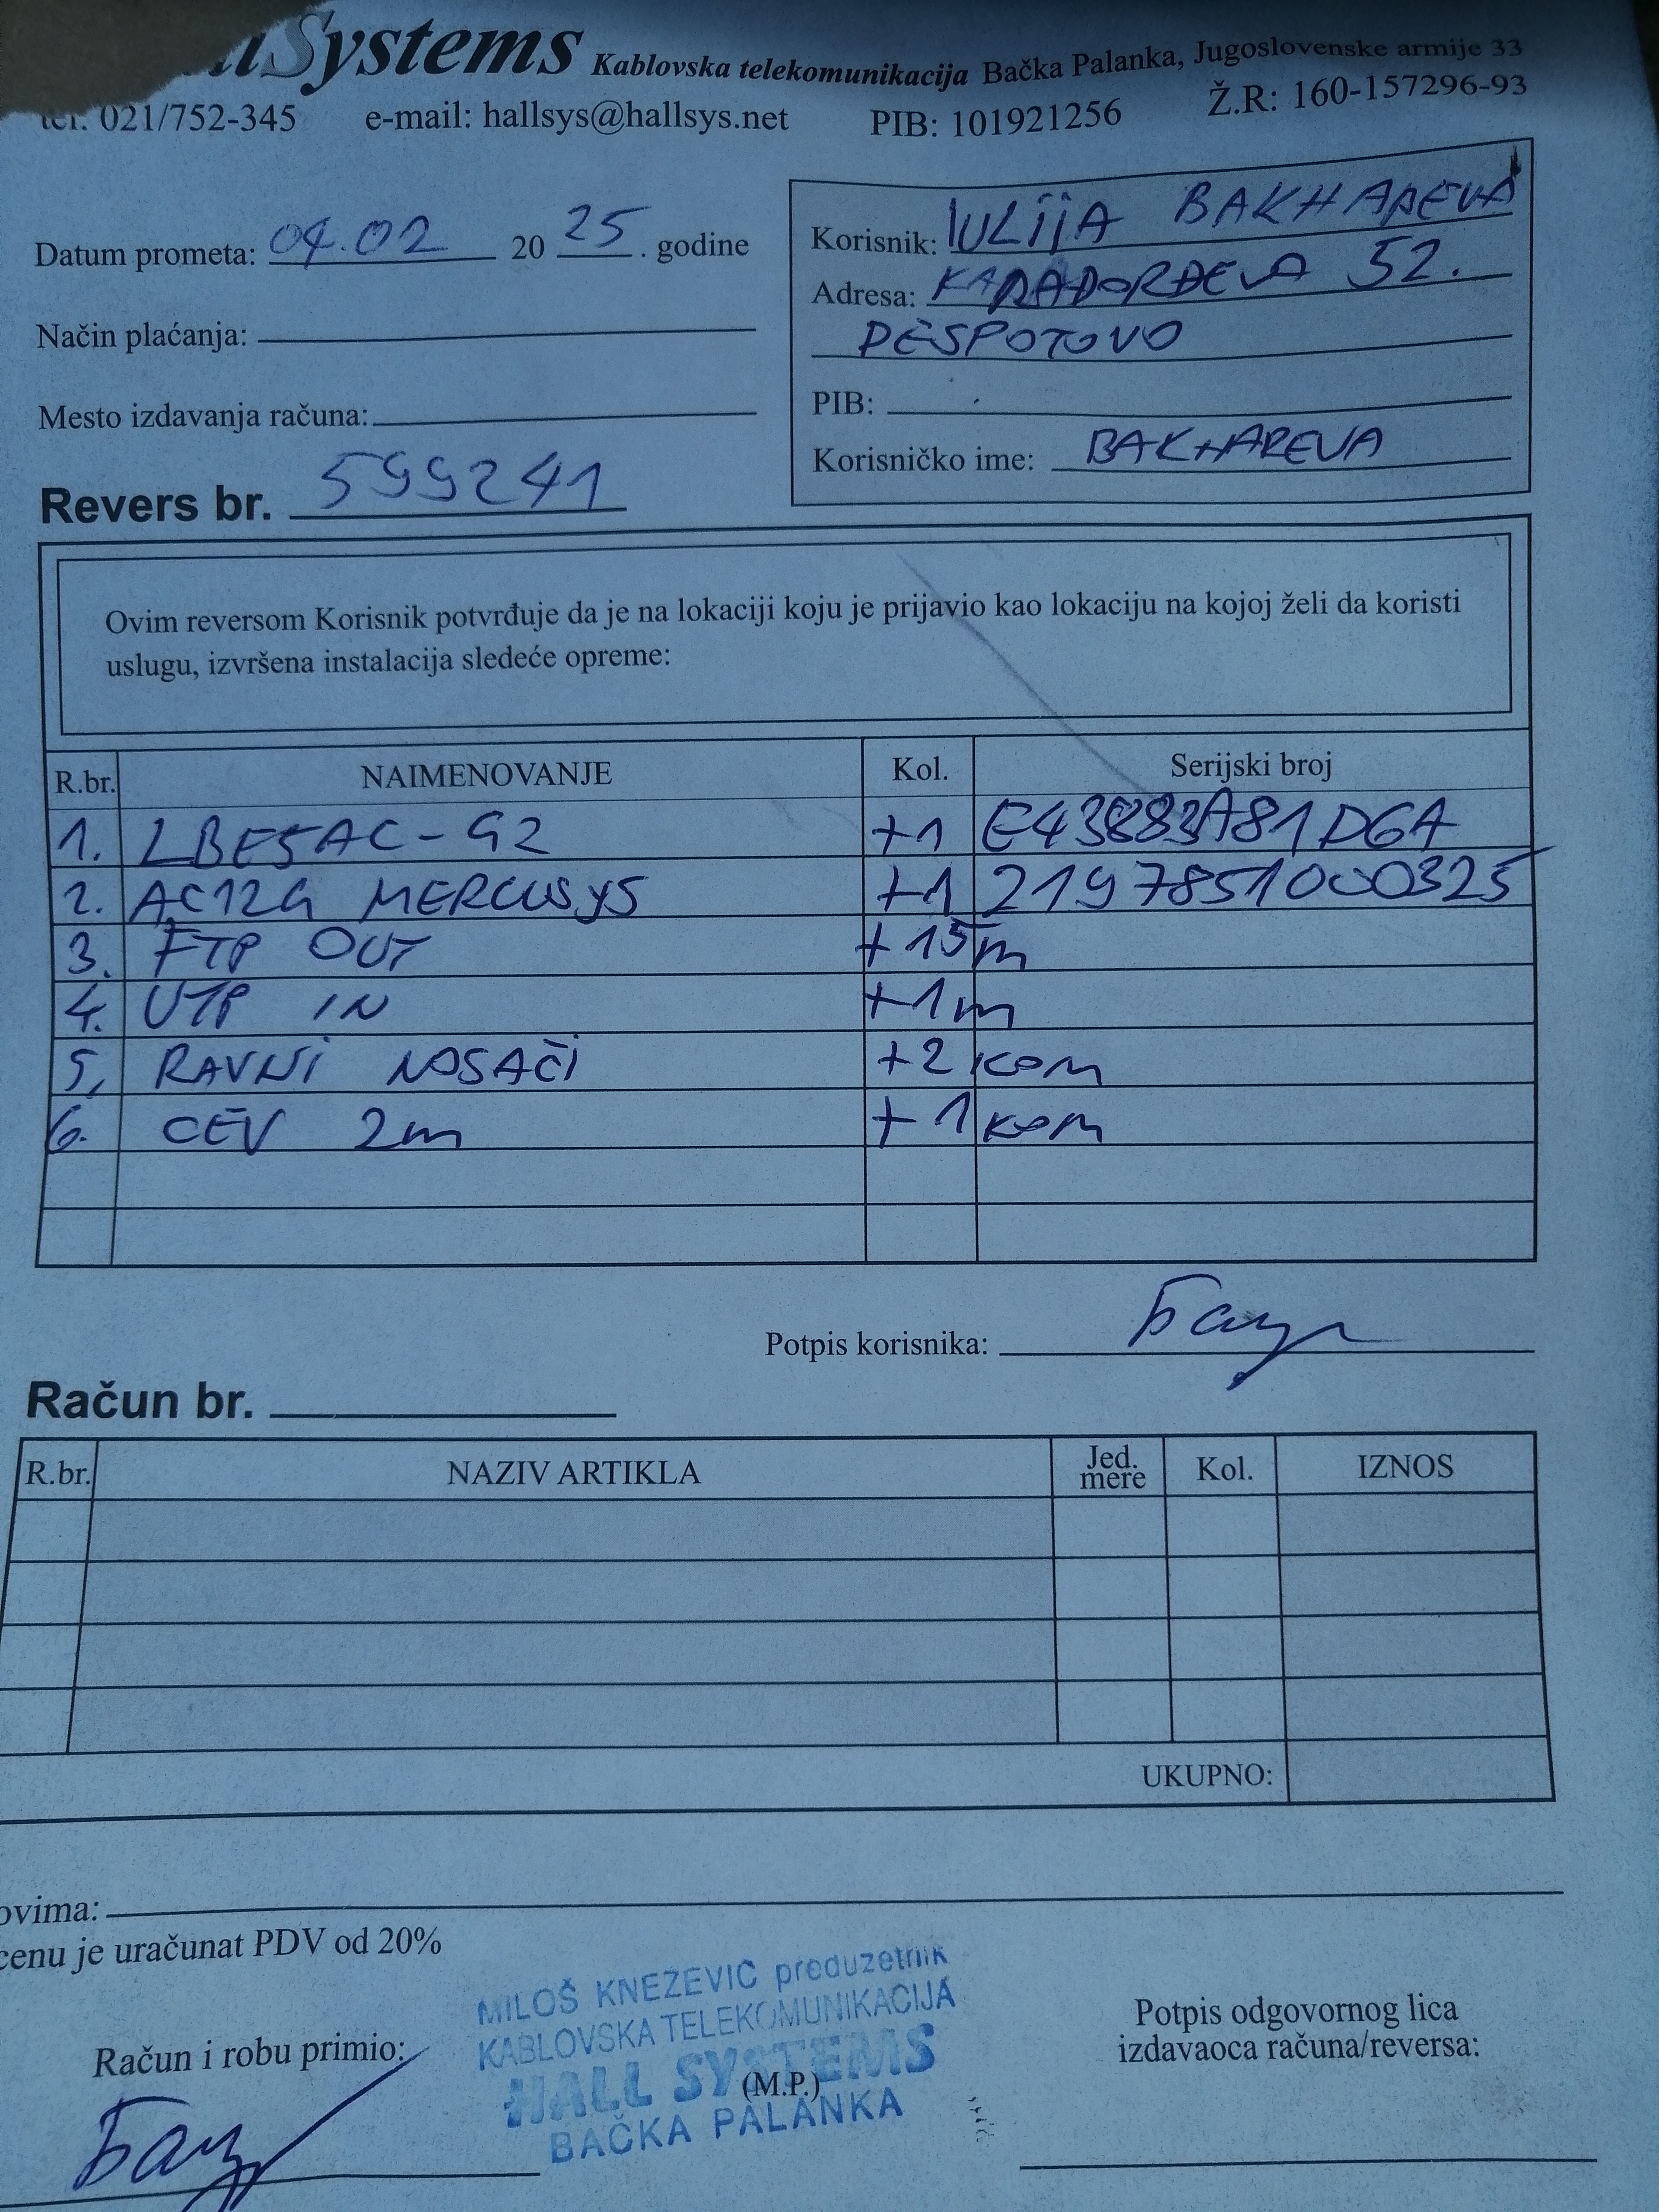 llSystems Kablovska telekomunikacija Bačka Palanka, Jugoslovenske armije 33
tel. 021/752-345 e-mail: hallsys@hallsys.net PIB: 101921256 Ž.R: 160-157296-93
Datum prometa: 04.02 20 25 . godine
Način plaćanja:
Mesto izdavanja računa:
Revers br. 599241
Korisnik: IULIJA BAKHAREVA
Adresa: KARAĐORĐEVA 52.
DESPOTOVO
PIB:
Korisničko ime: BAKHAREVA
Ovim reversom Korisnik potvrđuje da je na lokaciji koju je prijavio kao lokaciju na kojoj želi da koristi
uslugu, izvršena instalacija sledeće opreme:
R.br. NAIMENOVANJE Kol. Serijski broj
1. LBE5AC-G2 +1
2. AC12G MERCUSYS +1 2197851000325
3. FTP OUT +15m
4. UTP IN +1m
5. RAVNI NOSAČI +2 KOM
6. CEV 2m +1 KOM
Potpis korisnika:
Račun br.
R.br. NAZIV ARTIKLA Jed. mere Kol. IZNOS
UKUPNO:
ovima:
cenu je uračunat PDV od 20%
MILOŠ KNEŽEVIĆ preduzetnik
KABLOVSKA TELEKOMUNIKACIJA
HALL SYSTEMS
(M.P.)
BAČKA PALANKA
Račun i robu primio:
Potpis odgovornog lica
izdavaoca računa/reversa: